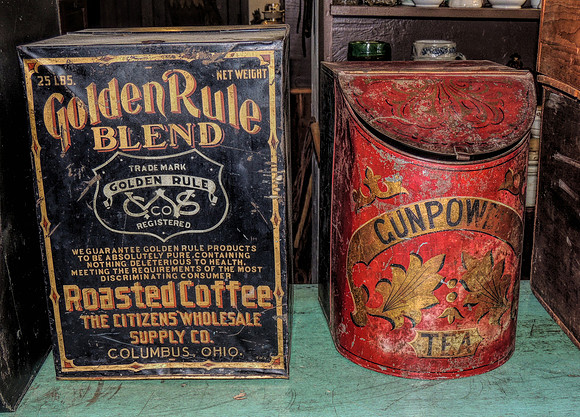 25 LBS. NET WEIGHT
Golden Rule
BLEND
TRADE MARK
GOLDEN RULE
CO
REGISTERED
WE GUARANTEE GOLDEN RULE PRODUCTS
TO BE ABSOLUTELY PURE, CONTAINING
NOTHING DELETERIOUS TO HEALTH,
MEETING THE REQUIREMENTS OF THE MOST
DISCRIMINATING CONSUMER
Roasted Coffee
THE CITIZENS' WHOLESALE
SUPPLY CO.
COLUMBUS, OHIO.
GUNPOW
TEA